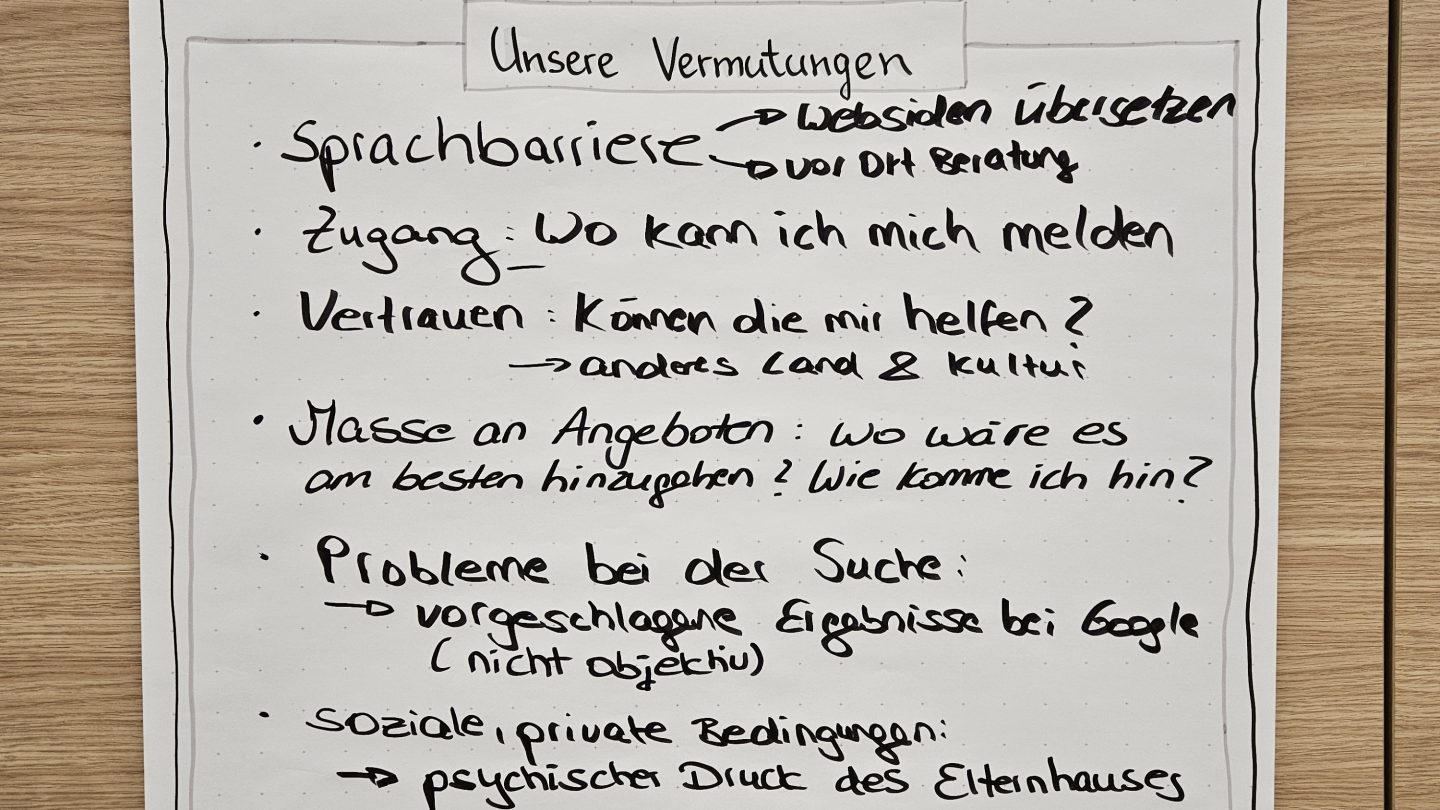 Unsere Vermutungen
· Sprachbarriere → Websiden übersetzen
→ vor Ort Beratung
· Zugang: Wo kann ich mich melden
· Vertrauen: Können die mir helfen?
→ anderes Land & Kultur
· Masse an Angeboten: Wo wäre es
am besten hinzugehen? Wie komme ich hin?
· Probleme bei der Suche:
→ vorgeschlagene Ergebnisse bei Google
(nicht objektiv)
· soziale, private Bedingungen:
→ psychischer Druck des Elternhauses